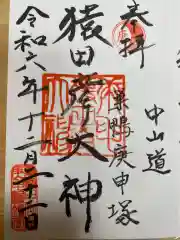 奉拝
中山道
巣鴨庚申塚
猿田彦大神
令和六年十一月二十二日